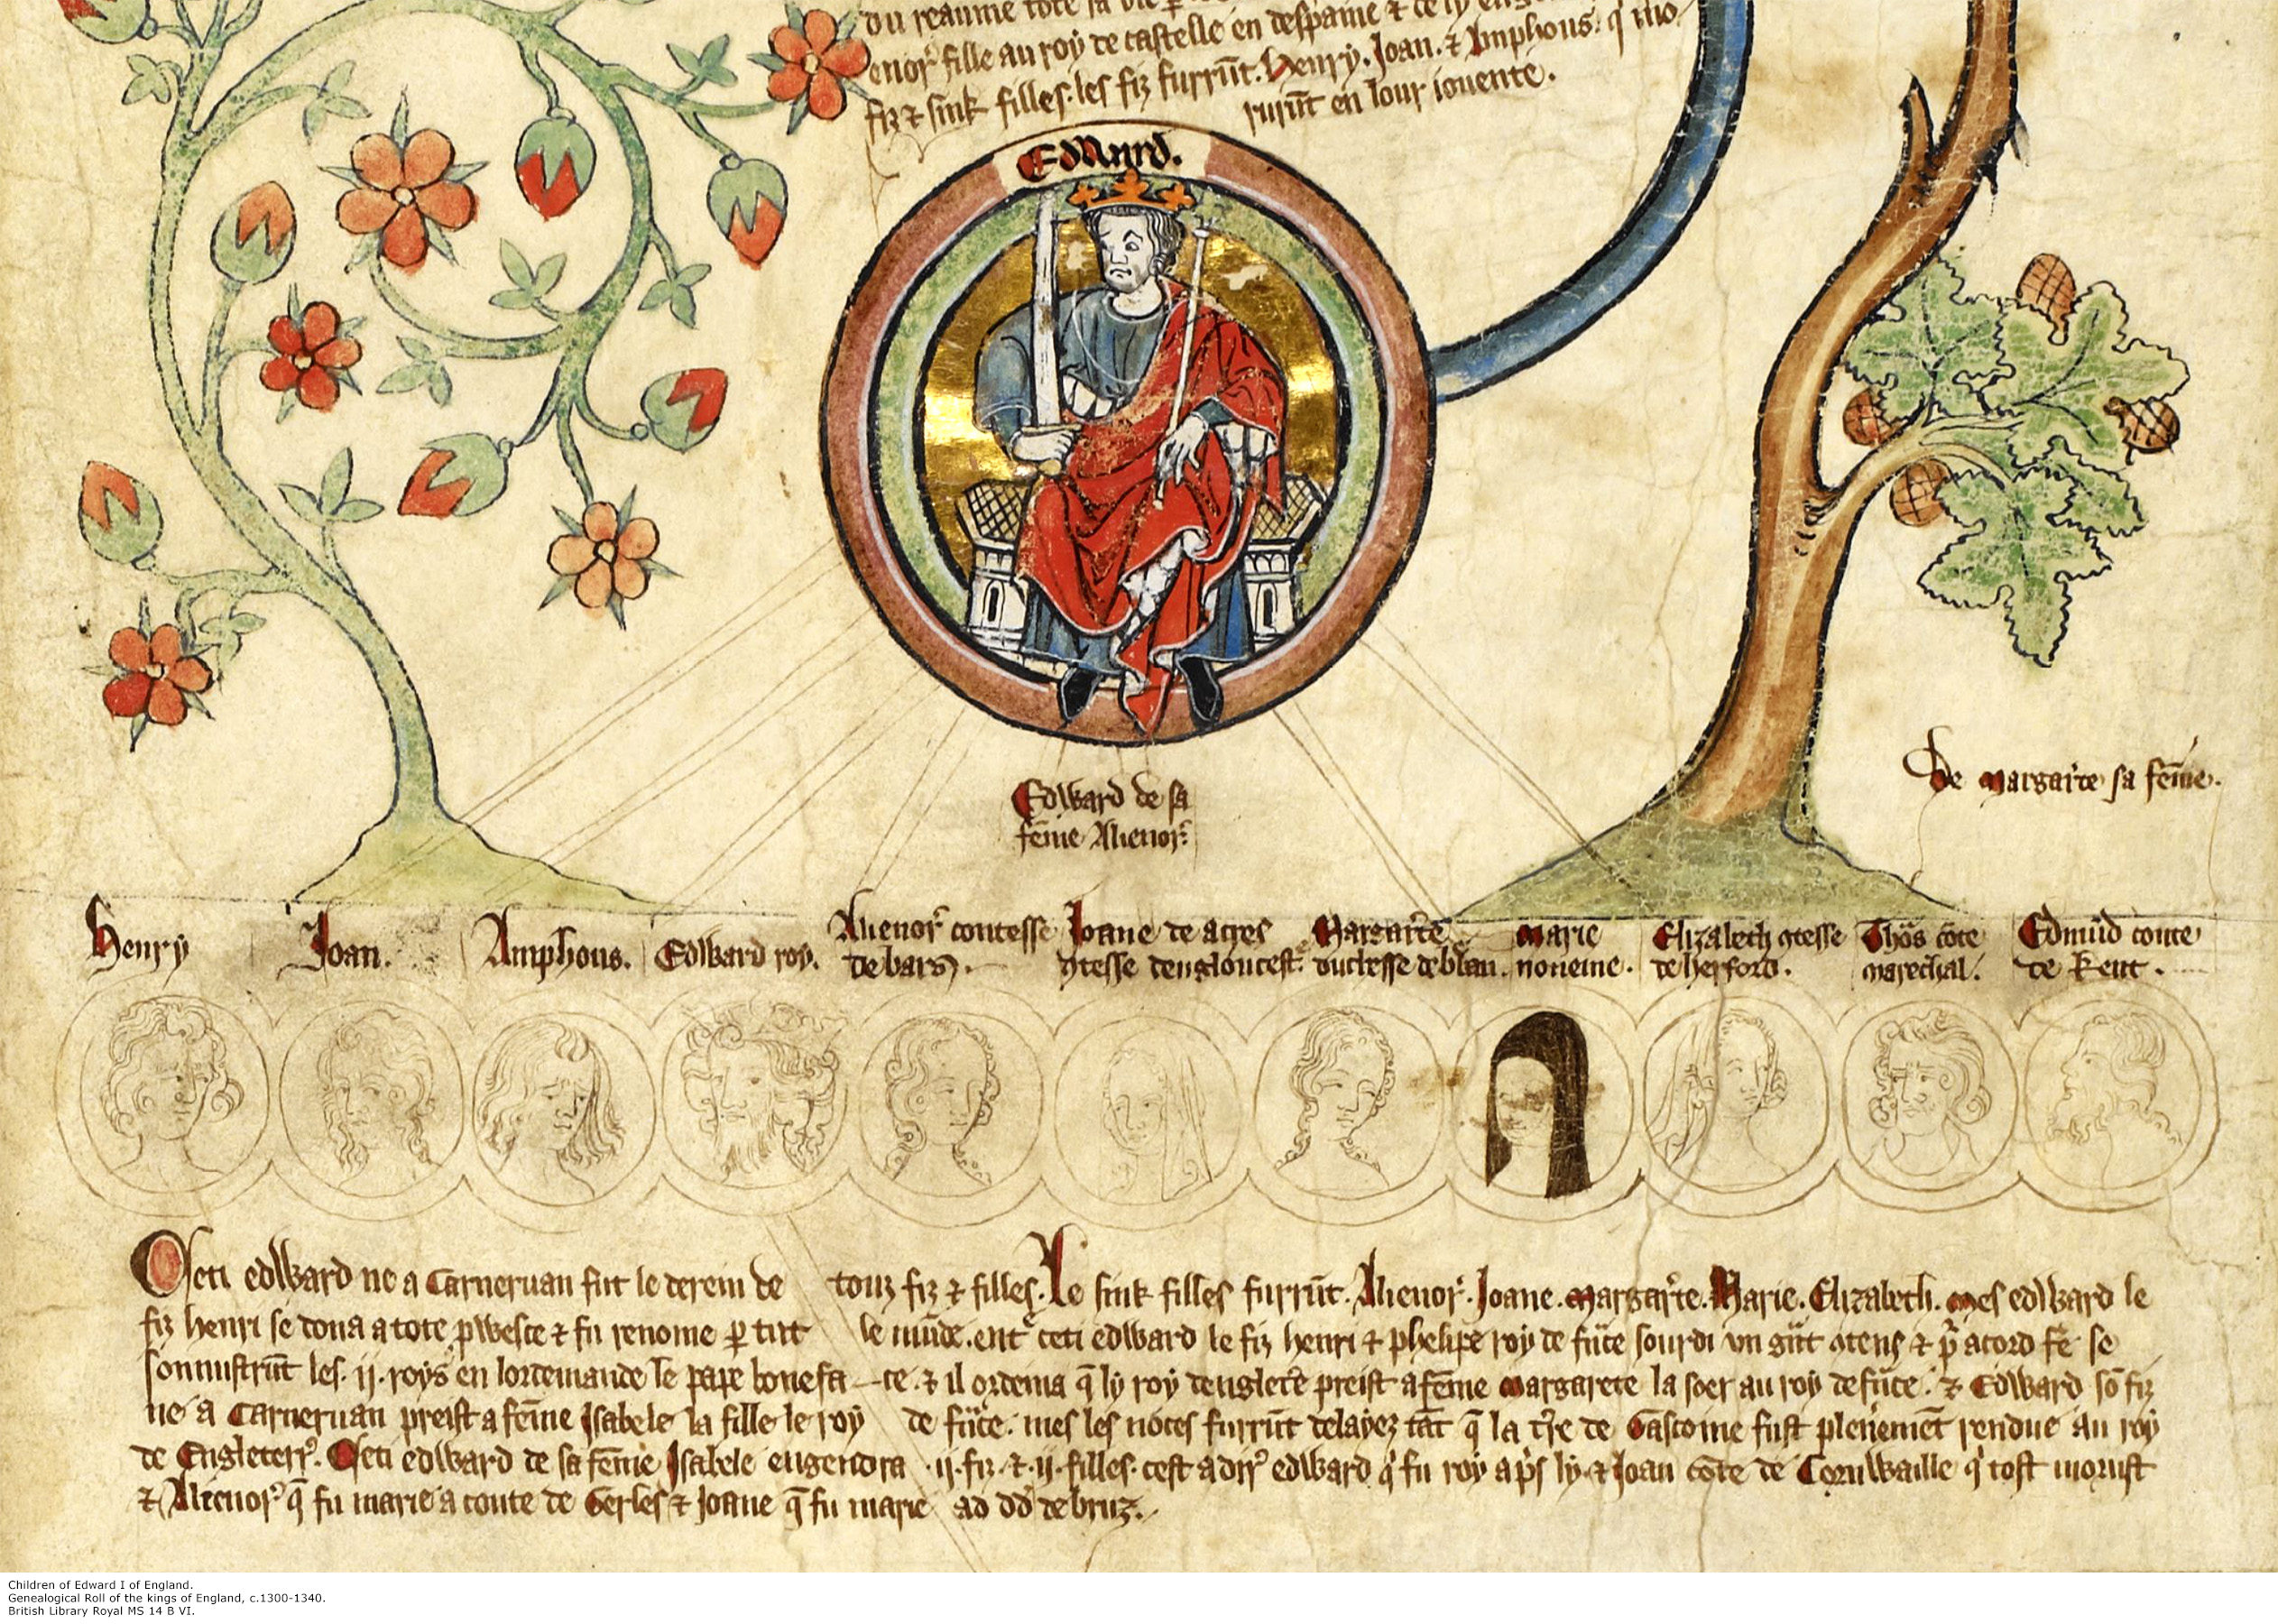 du reaume tote sa vie
enor fille au roy de castelle en despaine & de ly
fiz & sink filles. les fiz furrūt. Henry. Joan. & Amphous. q̇ mo
rurūt en lour iouente.
EdWard.
EdWard de sa
fēme Alienor̉.
De Margar̉te sa fēme.
Henry
Joan.
Amphous.
EdWard roy.
Alienor̉ contesse
de bars.
Joane de acres
ꝯtesse dengloucest̉.
Margar̉te
duchesse de
Marie
noneine.
Elizabeth ꝯtesse
de herford.
Thōs cōte
mareschal.
Edmūd conte
de Kent.
Ceti edWard ne a Carneruan fut le derein de touz fiz & filles. Le sink filles furrūt. Alienor̉. Joane. Margar̉te. Marie. Elizabeth. Mes edWard le
fiz henri se dona a tote pWesce & fu renome ꝑ tut le mūde. ent̉ ceti edWard le fiz henri & phelipe roy de fūce sourdi un gūt ꝯtens & p̉ acord fē se
sonmistrūt les .ij. roys en lordeinance le pape bonefa-ce. & il ordeina q̄ ly roy denglet̉e preist a fēme Margarete la soer au roy de fūce. & EdWard sō fiz
ne a Carneruan preist a fēme Isabele la fille le roy de fūce. mes les noces furrūt delayez tāt q̄ la t̉re de Gascoine fust pleinemēt rendue au roy
de Engleterr̉. Ceti edWard de sa fēme Isabele engendra .ij. fiz .&. ij. filles. cest a dir̉ edWard q̇ fu roy ap̉s ly. & Joan cōte de CornWaille q̇ tost morust
& Alienor̉ q̄ fu marie a conte de Gerles & Joane q̄ fu marie a dd̄ de bruz.
Children of Edward I of England.
Genealogical Roll of the kings of England, c.1300-1340.
British Library Royal MS 14 B VI.